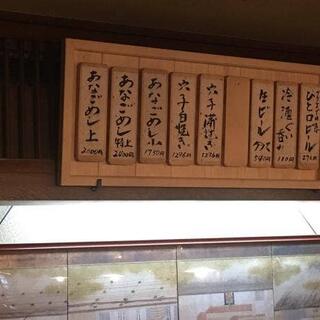 あなごめし上
2000円
あなごめし特上
2400円
あなごめし小
1750円
穴子白焼き
1246円
穴子蒲焼き
1236円
生ビール
540円
冷酒ぐい呑み
180円
ひと口ビール